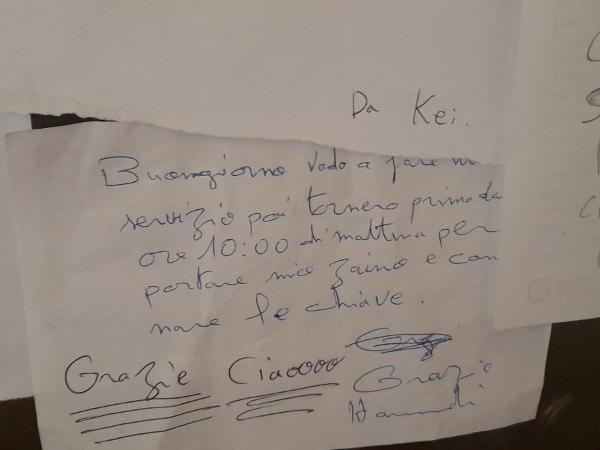 Da Kei.
Buongiorno vado a fare
servizio poi tornero prima da
ore 10:00 di mattina per
portare mio zaino e con
nare le chiave.
Grazie Ciaoooo
Grazie
Hamdi